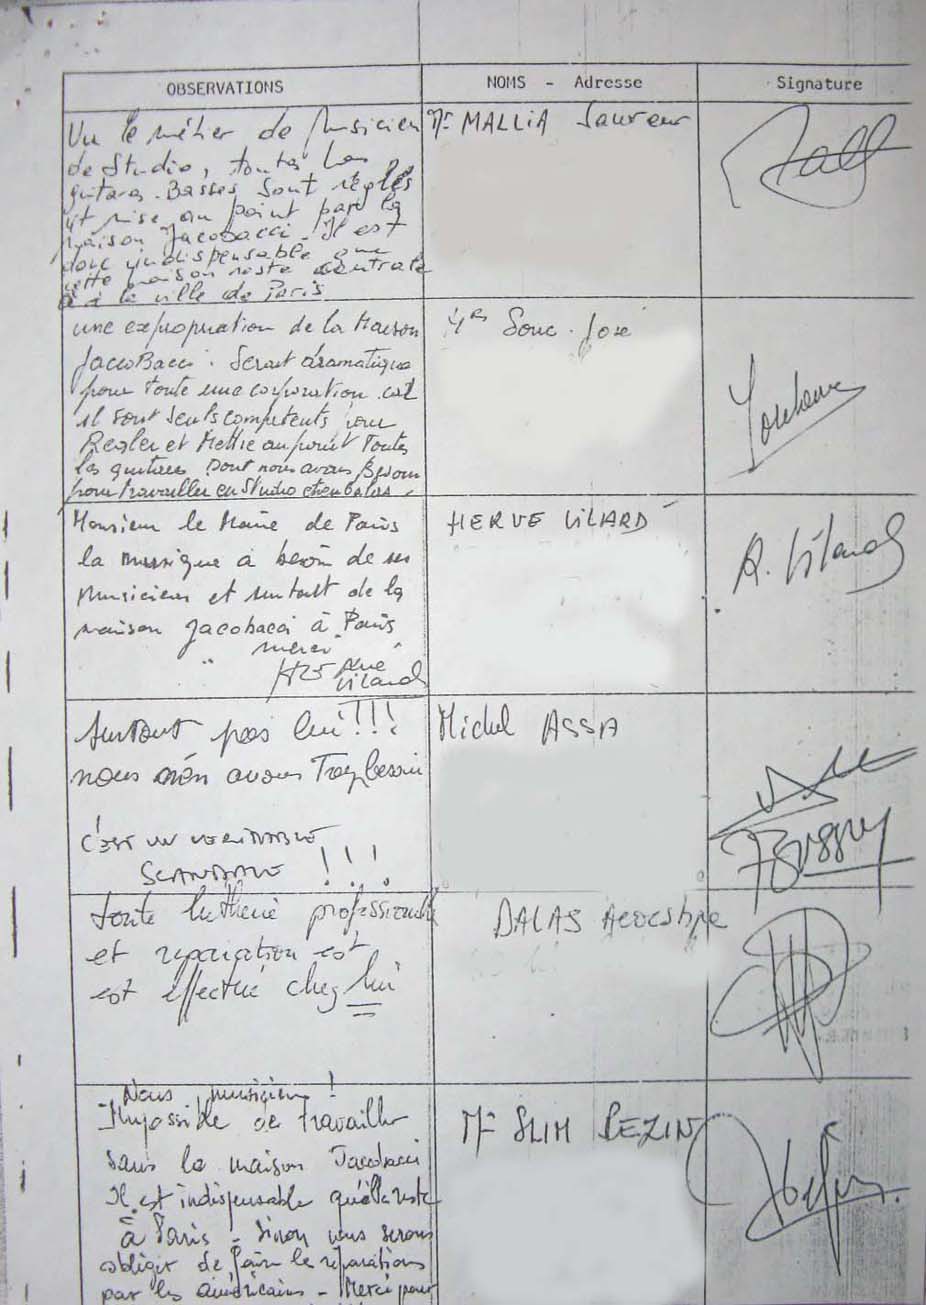 OBSERVATIONS
NOMS - Adresse
Signature
Vu le métier de Musicien
de Studio, toutes les
guitares. Basses sont réglés
et mise au point par la
maison Jacobacci. Il est
donc indispensable que
cette maison reste centrale
à la ville de Paris
Mr MALLIA Sauveur
une expropriation de la Maison
JaccoBacci. Serait dramatique
pour toute une corporation car
il sont seuls competents pour
Regler et Mettre au point Toutes
les guitares Dont nous avons Besoin
pour travailler en Studio et en
Souc José
Monsieur le Maire de Paris
la musique à besoin de ses
musiciens et surtout de la
maison Jacobacci à Paris
merci
Vilard
HERVE VILARD
Surtout pas lui !!!
nous en avons Trop besoin
C'EST UN VERITABLE
SCANDALE !!!
Michel ASSA
toute lutherie professionnelle
et reparation est
est effectué chez lui
DALAS
Nous musiciens !
Impossible de travailler
sans la maison Jacobacci
Il est indispensable qu'elle reste
à Paris - Sinon nous serons
obliger de faire le réparations
par les américains - Merci pour
Mr SLIM PEZIN